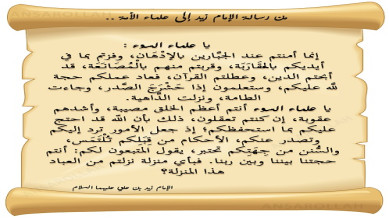 من رسالة الإمام زيد إلى علماء الأمة ..
يا علماء السوء :
إنما أمنتم عند الجبّارين بالإدْهَان، وفزتم بما في
أيديكم بالمُقَارَبَة، وقربتم منهم بالمُصَانَعة، قد
أبحتم الدين، وعطلتم القرآن، فعاد علمكم حجة
لله عليكم، وستعلمون إذا حَشْرَجَ الصَّدر، وجاءت
الطامة، ونزلت الدَّاهية.
يا علماء السوء أنتم أعظم الخلق مصيبة، وأشدهم
عقوبة، إن كنتم تعقلون، ذلك بأن الله قد احتج
عليكم بما استحفظكم؛ إذ جعل الأمور ترد إليكم
وتصدر عنكم، الأحكام من قِبَلِكم تُلْتَمَس،
والسُّنن من جِهَتِكم تختبر، يقول المتبعون لكم: أنتم
حجتنا بيننا وبين ربنا. فبأي منزلة نزلتم من العباد
هذا المنزلة؟
الإمام زيد بن علي عليهما السلام
ANSAROLLAH